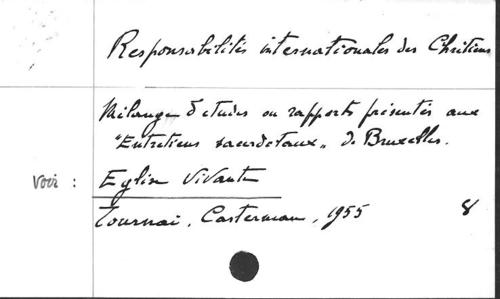 Responsabilités internationales des Chrétiens
Mélanges d'études ou rapports présentés aux
"Entretiens sacerdotaux" de Bruxelles.
Voir : Eglise Vivante
Tournai, Casterman, 1955 8